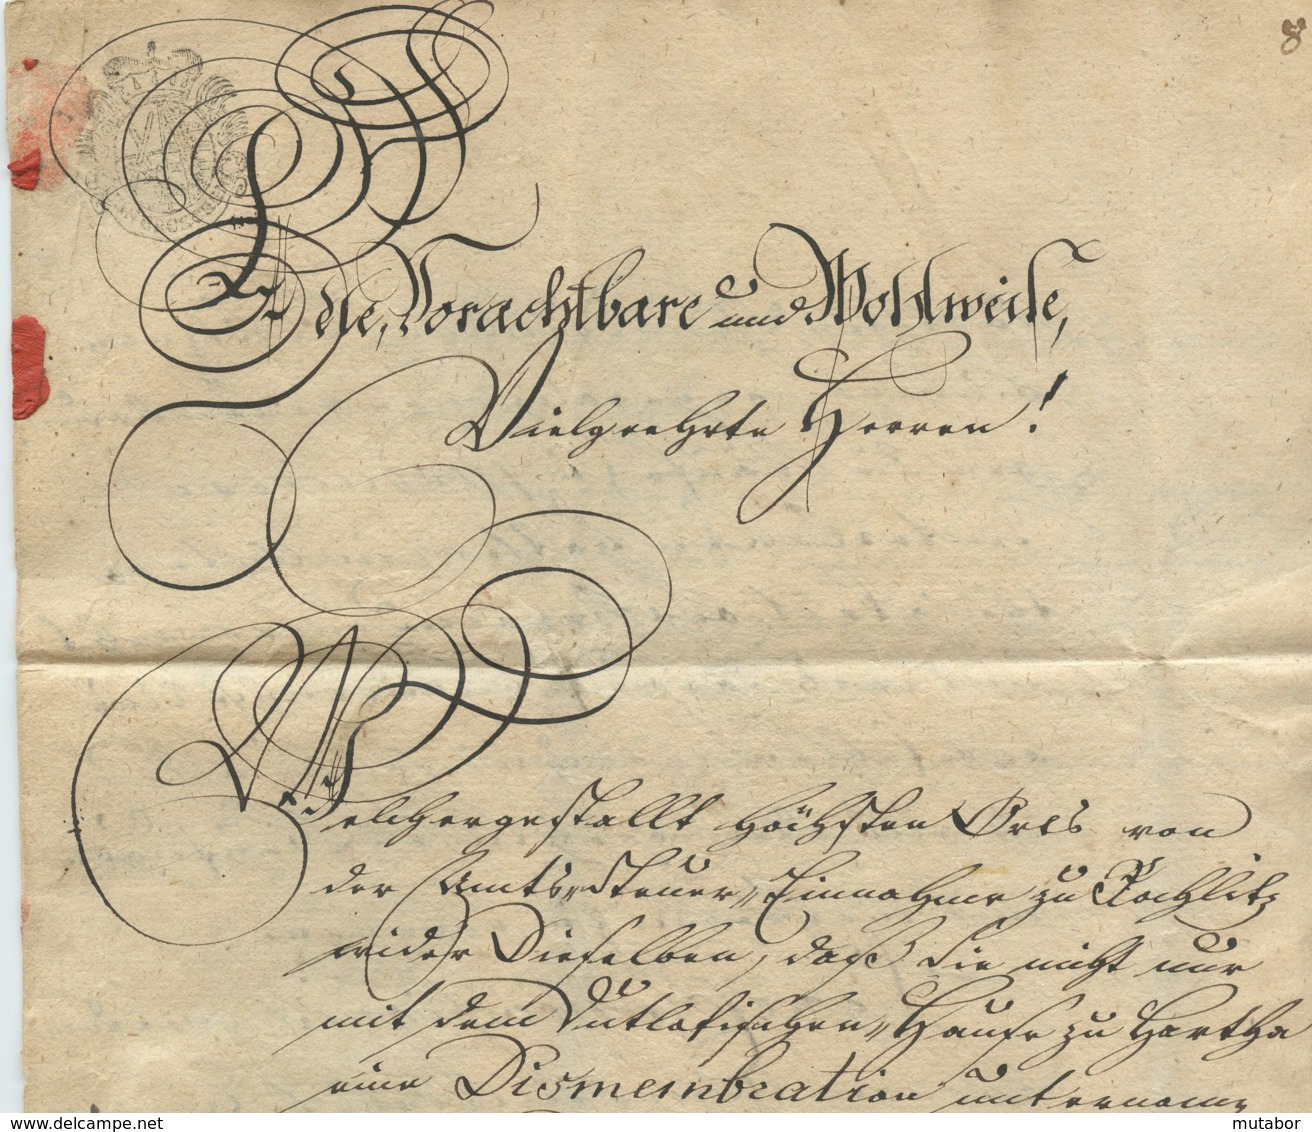 8
Edle, Vorachtbare und Wohlweise,
Vielgeehrte Herren!
Welchergestallt höchsten Orts von
der Amts-Steuer-Einnahme zu Rochlitz
wider Dieselben, daß Sie nicht nur
mit dem Hause zu Hartha
eine Dismembration unternom-
www.delcampe.net
mutabor